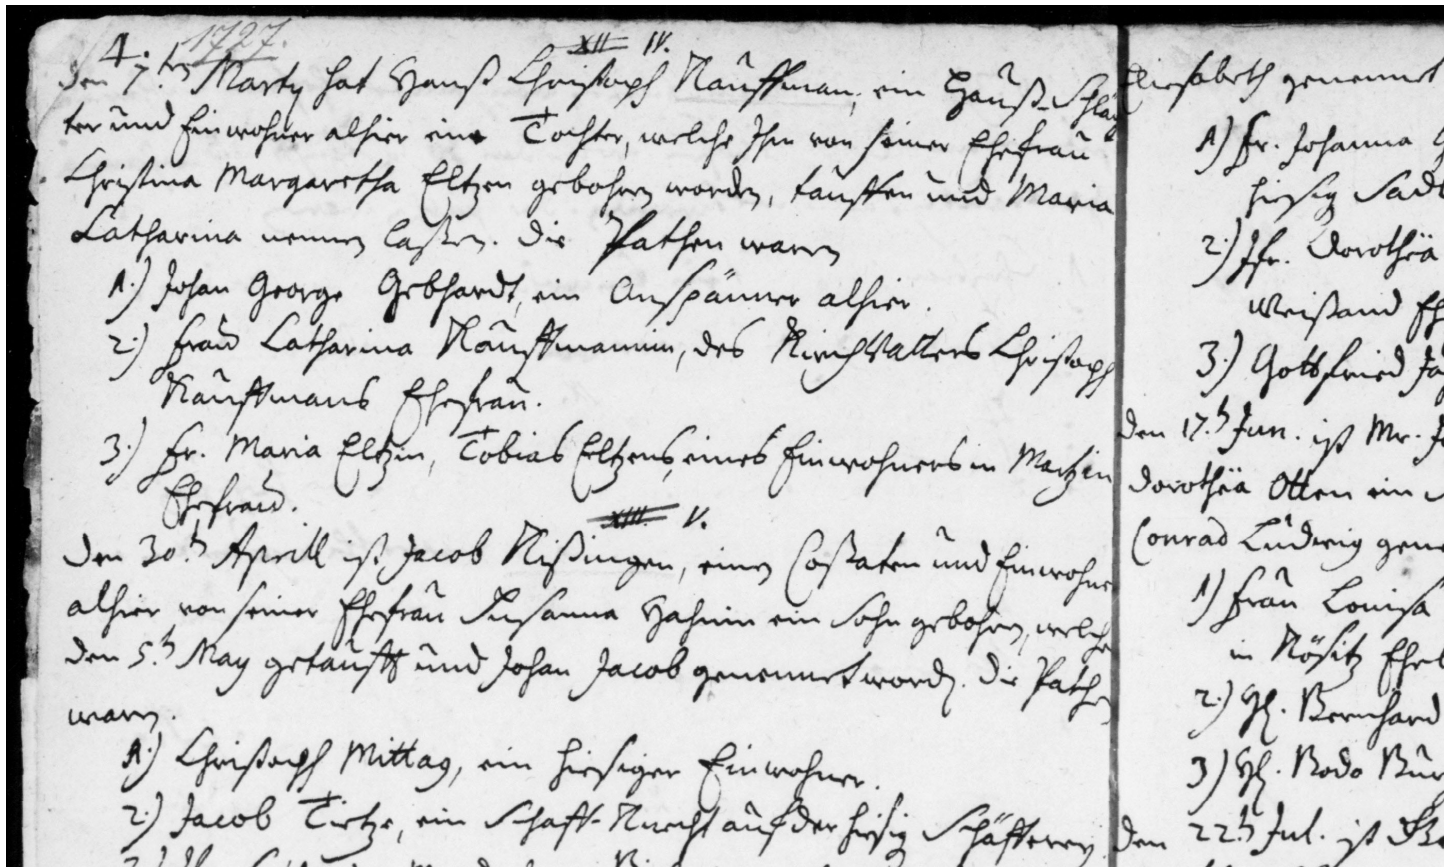 4.
1727.
XII IV.
den 7.ten Martij hat Hanß Christoph Kauffman, ein Hauß-Schläch
ter und Einwohner alhier eine Tochter, welche Ihm von seiner Ehefrau
Christina Margaretha Eltzen gebohren worden, tauffen und Maria
Catharina nennen laßen. Die Pathen waren
1.) Johan George Gebhardt, ein Anspänner alhier.
2.) Frau Catharina Kauffmannin, des KirchVatters Christoph
Kauffmans Ehefrau.
3.) Fr. Maria Eltzin, Tobias Eltzens, eines Einwohners in Martzin
Ehefrau.
XIII. V.
Den 30.ten Aprill ist Jacob Kißingen, einen Coßaten und Einwohner
alhier von seiner Ehefrau Susanna Hahnin ein Sohn gebohren, welcher
den 5.ten May getaufft und Johan Jacob genennet worden. Die Pathen
waren.
1.) Christoph Mittag, ein hiesiger Einwohner.
2.) Jacob Tietze, ein Schaff-Knecht auf der hiesig Schäfferey.
Elisabeth genennet
1) Fr. Johanna
hiesig
2.) Jfr. Dorothëa
Weißand
3.) Gottfried
den 17.ten Jun. ist Mr.
Dorothëa Otten ein
Conrad Ludwig
1) Frau Louisa
in Kösitz
2.) H. Bernhard
3) H. Bodo
Den 22.ten Jul. ist